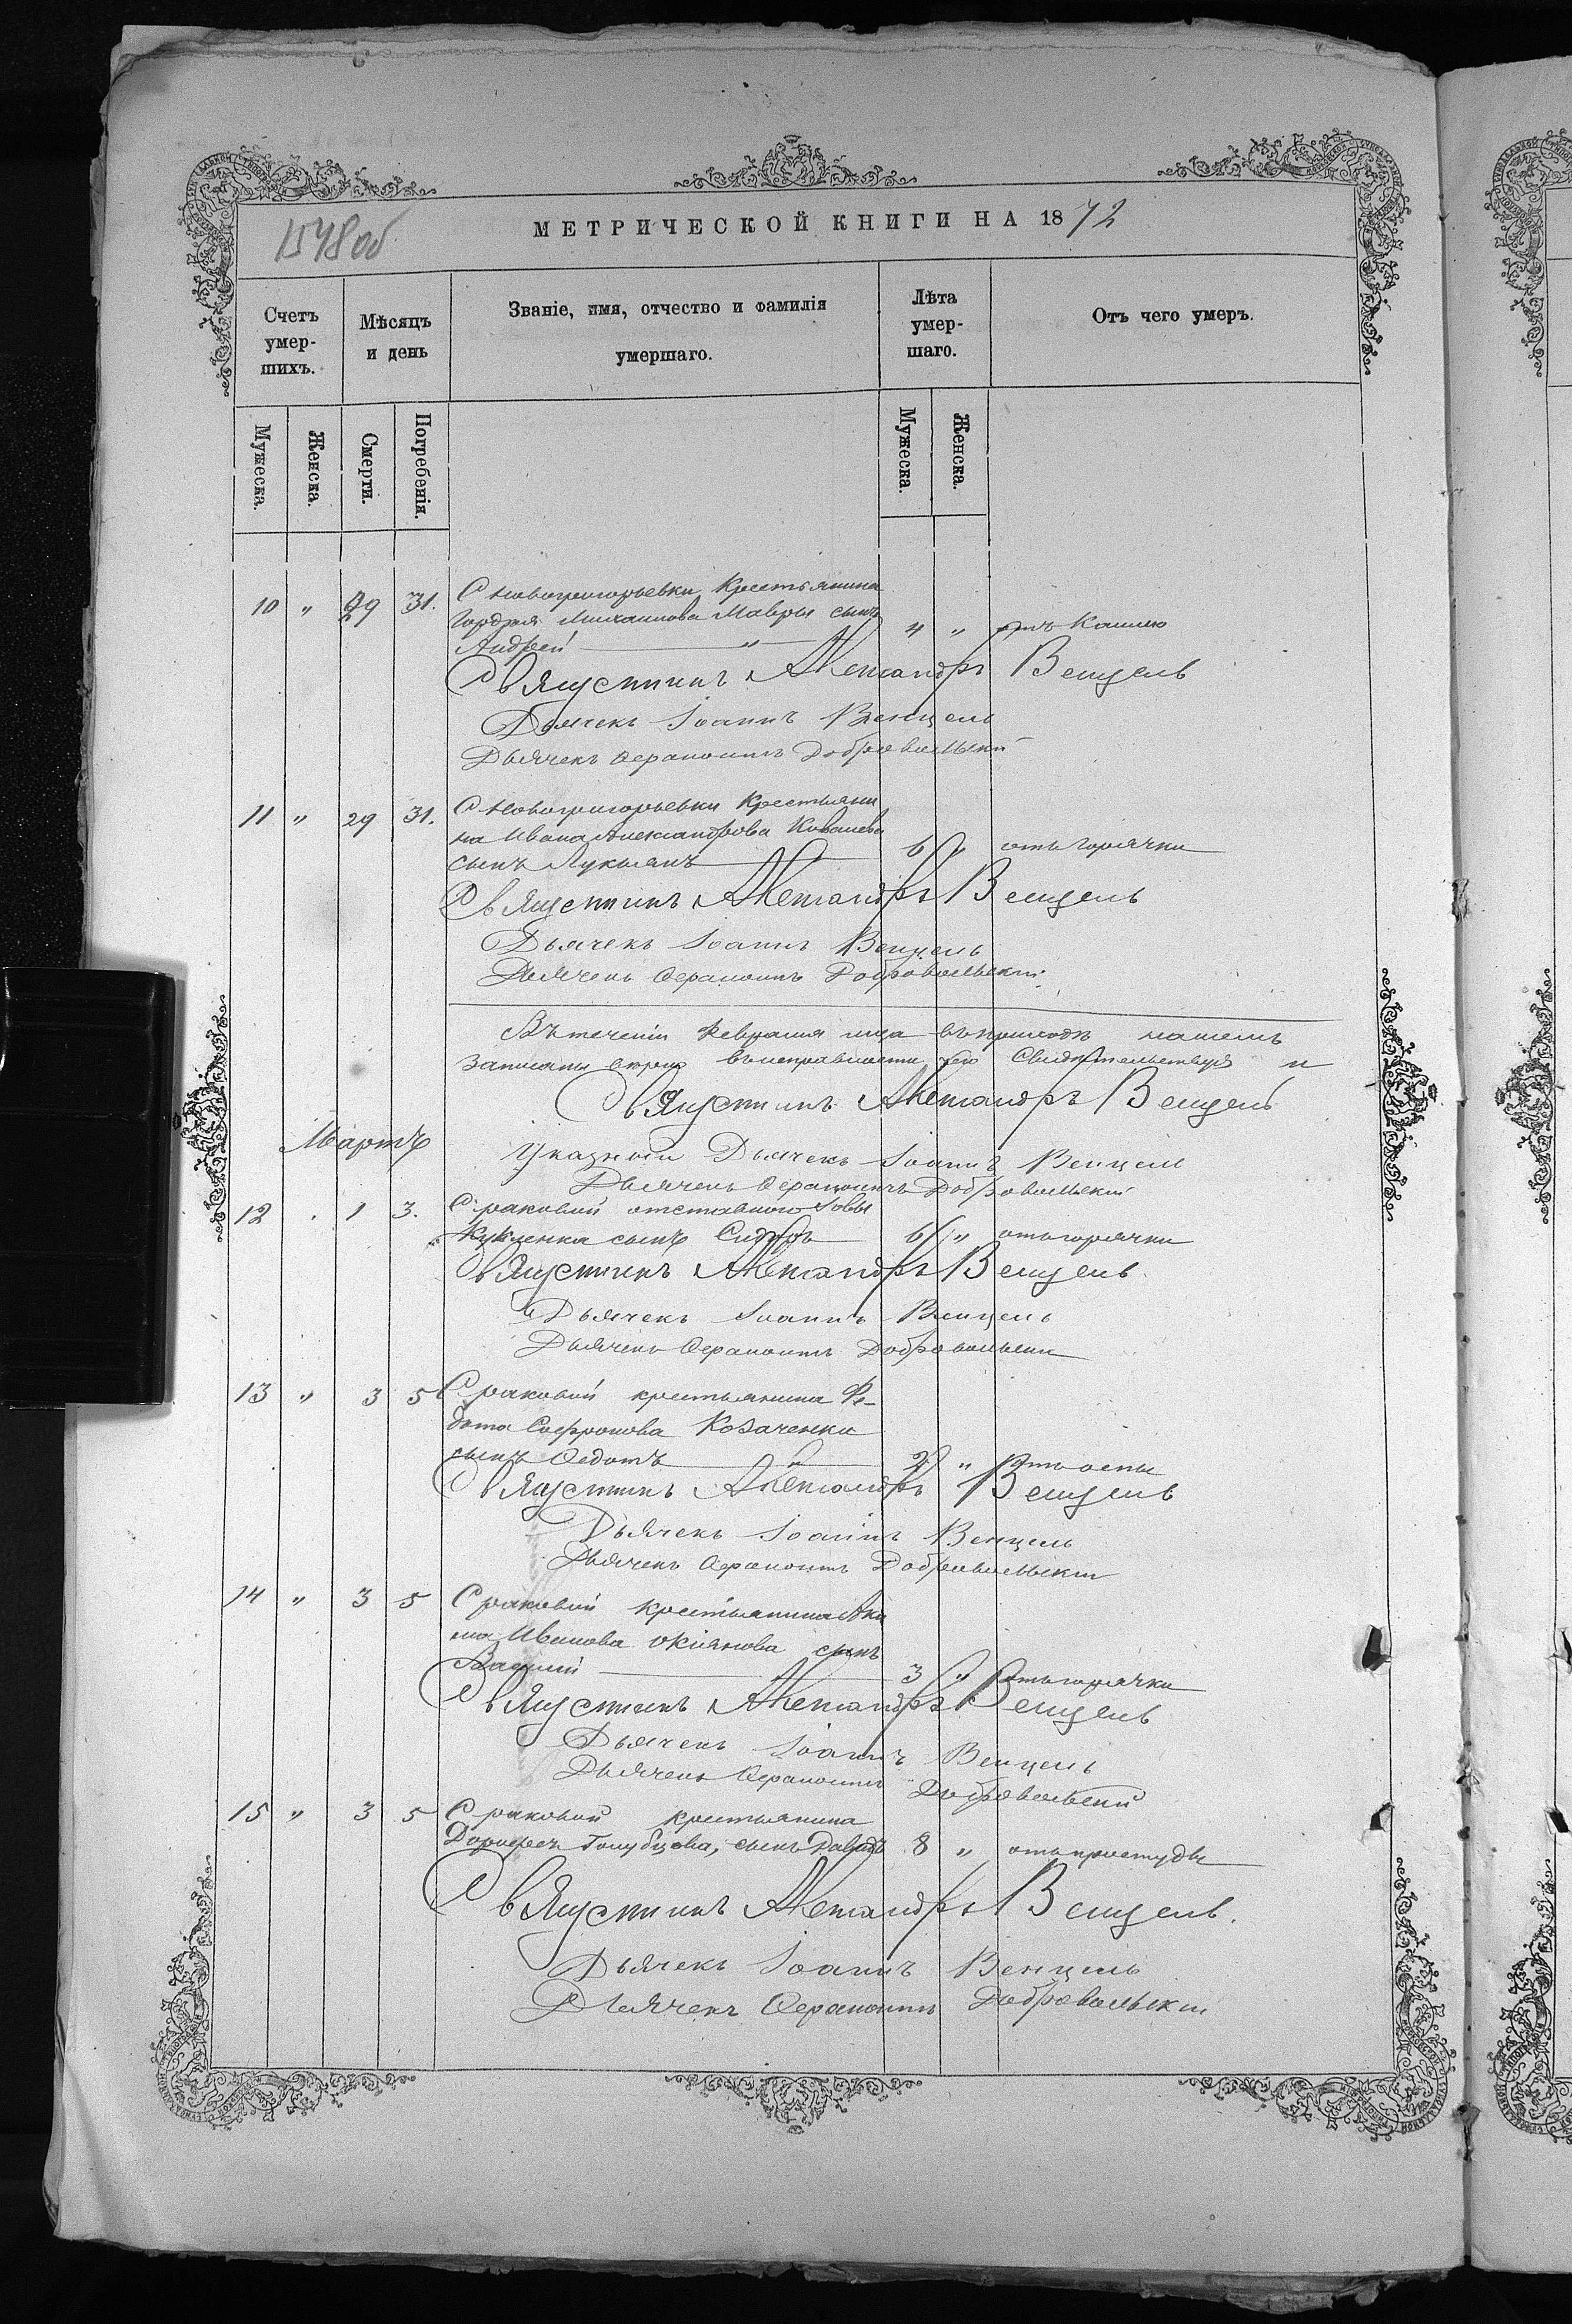 1548 об
МЕТРИЧЕСКОЙ КНИГИ НА 1872
Счетъ умер-шихъ.
Мѣсяцъ и день
Званіе, имя, отчество и фамилія умершаго.
Лѣта умер-шаго.
Отъ чего умеръ.
Мужеска.
Женска.
Смерти.
Погребенія.
Мужеска.
Женска.
10 " 29 31. С Новогригорьевки Крестьянина
Гордея Михаилова Мавры сынъ
Андрей " 4 " отъ Кашлю
Священникъ Александръ Венцель
Дьячекъ Іоаннъ Венцель
Дьячекъ Ѳерапонтъ Добровольскій
11 " 29 31. С Новогригорьевки Крестьяни
на Ивана Александрова Ковалева
сынъ Лукьянъ 6 " отъ горячки
Священникъ Александръ Венцель
Дьячекъ Іоаннъ Венцель
Дьячекъ Ѳерапонтъ Добровольскій
Въ теченіи Февраля м-ца въ приходѣ нашемъ
записаны въ исправности свидѣтельствуя
Священникъ Александръ Венцель
Мартъ
Указный Дьячекъ Іоаннъ Венцель
Дьячекъ Ѳерапонтъ Добровольскій
12 . 1 3. С раковой отставного Іовы
Кукленка сынъ Сидоръ 6 " отъ горячки
Священникъ Александръ Венцель
Дьячекъ Іоаннъ Венцель
Дьячекъ Ѳерапонтъ Добровольскій
13 " 3 5 С раковой крестьянина Фе-
дота Софронова Козаченки
сынъ Ѳедотъ " 2 " отъ оспы
Священникъ Александръ Венцель
Дьячекъ Іоаннъ Венцель
Дьячекъ Ѳерапонтъ Добровольскій
14 " 3 5 С раковой крестьянина Аки
ма Иванова сынъ
Василій 3 " отъ горячки
Священникъ Александръ Венцель
Дьячекъ Іоаннъ Венцель
Дьячекъ Ѳерапонтъ Добровольскій
15 " 3 5 С раковой крестьянина
Дорофея Голубцова, сынъ Давидъ 8 " отъ простуды
Священникъ Александръ Венцель.
Дьячекъ Іоаннъ Венцель
Дьячекъ Ѳерапонтъ Добровольскій